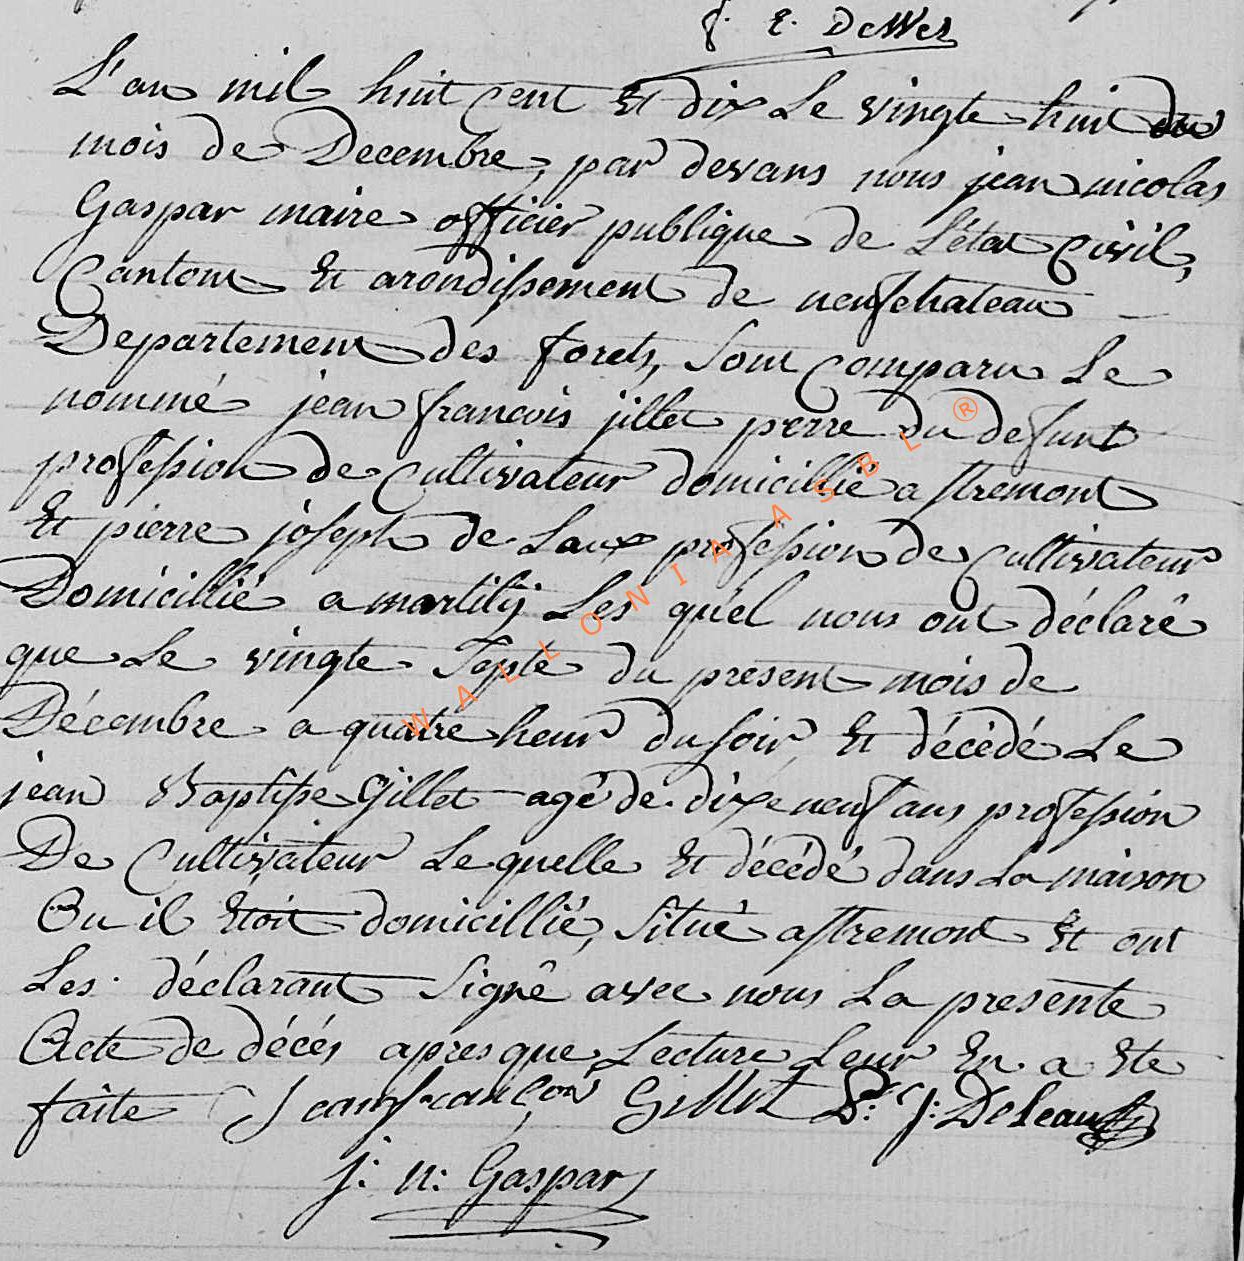 f. E. DeWez
L'an mil huit cent Et dix Le vingte huit du
mois de Decembre, par devans nous jean nicolas
Gaspar maire officier publique de L'état Civil,
Cantont Et arondissement de neufchateau
Departement des forets, sont comparu Le
nommé jean francois jillet perre du defunt
profession de Cultivateur domicillié a stremont
Et pierre joseph de Laux profession de Cultivateur
Domicillié a martilÿ Les qu'el nous ont déclaré
que Le vingte septe du present mois de
Décembre a quatre heur du soir Et décédé Le
jean Baptiste Gillet agé de dixe neuf ans profession
De Cultivateur Le quelle Et décédé dans La maison
Ou il Etoit domicillié, Situé a stremont Et ont
Les déclarant Signé avec nous La presente
Acte de décés apres que Lecture Leur En a Ete
faite Jeanfrancon Gillet P: J: DeLeau
j: n: Gaspar
WALLONIA ASBL ®